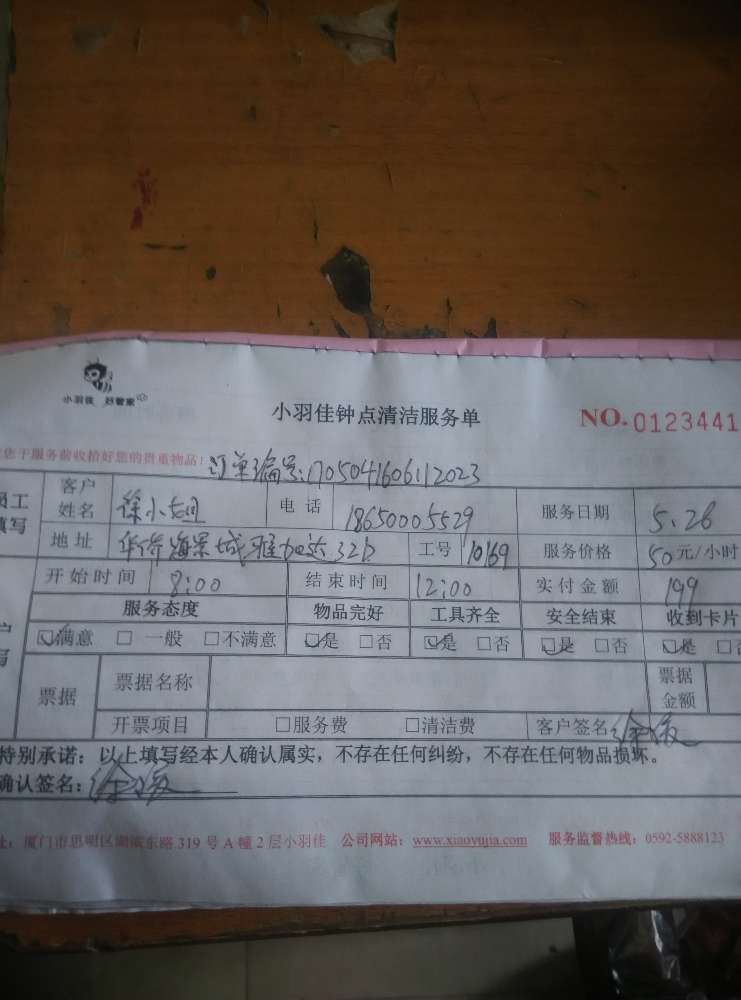 小羽佳 好管家
小羽佳钟点清洁服务单 NO.0123441
您于服务前收拾好您的贵重物品！ 订单编号:1705041606112023
员工填写 客户姓名 徐小姐 电话 18650005529 服务日期 5.26
地址 海景城雅 32D 工号 10169 服务价格 50元/小时
开始时间 8:00 结束时间 12:00 实付金额 199
服务态度 物品完好 工具齐全 安全结束 收到卡片
☑满意 □一般 □不满意 ☑是 □否 ☑是 □否 ☑是 □否 ☑是 □
票据 票据名称 票据金额
开票项目 □服务费 □清洁费 客户签名 徐
特别承诺：以上填写经本人确认属实，不存在任何纠纷，不存在任何物品损坏。
确认签名：徐
址：厦门市思明区湖滨东路319号A幢2层小羽佳 公司网站：www.xiaoyujia.com 服务监督热线：0592-5888123